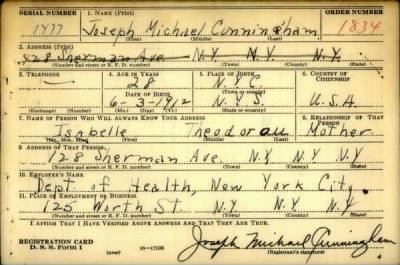 SERIAL NUMBER 1. NAME (Print) ORDER NUMBER
1477 Joseph Michael Cunningham 1834
(First) (Middle) (Last)
2. ADDRESS (Print)
128 Sherman Ave N.Y. N.Y. N.Y.
(Number and street or R. F. D. number) (Town) (County) (State)
3. TELEPHONE 4. AGE IN YEARS 5. PLACE OF BIRTH 6. COUNTRY OF CITIZENSHIP
— 28 N.Y.C.
DATE OF BIRTH (Town or county)
6-3-1912 N.Y.S. U.S.A.
(Exchange) (Number) (Mo.) (Day) (Yr.) (State or country)
7. NAME OF PERSON WHO WILL ALWAYS KNOW YOUR ADDRESS 8. RELATIONSHIP OF THAT PERSON
Isabelle Theodorau Mother
(Mr., Mrs., Miss) (First) (Middle) (Last)
9. ADDRESS OF THAT PERSON
128 Sherman Ave. N.Y N.Y N.Y
(Number and street or R. F. D. number) (Town) (County) (State)
10. EMPLOYER'S NAME
Dept. of Health, New York City
11. PLACE OF EMPLOYMENT OR BUSINESS
125 Worth St N.Y N.Y N.Y
(Number and street or R. F. D. number) (Town) (County) (State)
I AFFIRM THAT I HAVE VERIFIED ABOVE ANSWERS AND THAT THEY ARE TRUE.
REGISTRATION CARD
D. S. S. FORM 1 (over) 16-17105 Joseph Michael Cunningham
(Registrant's signature)